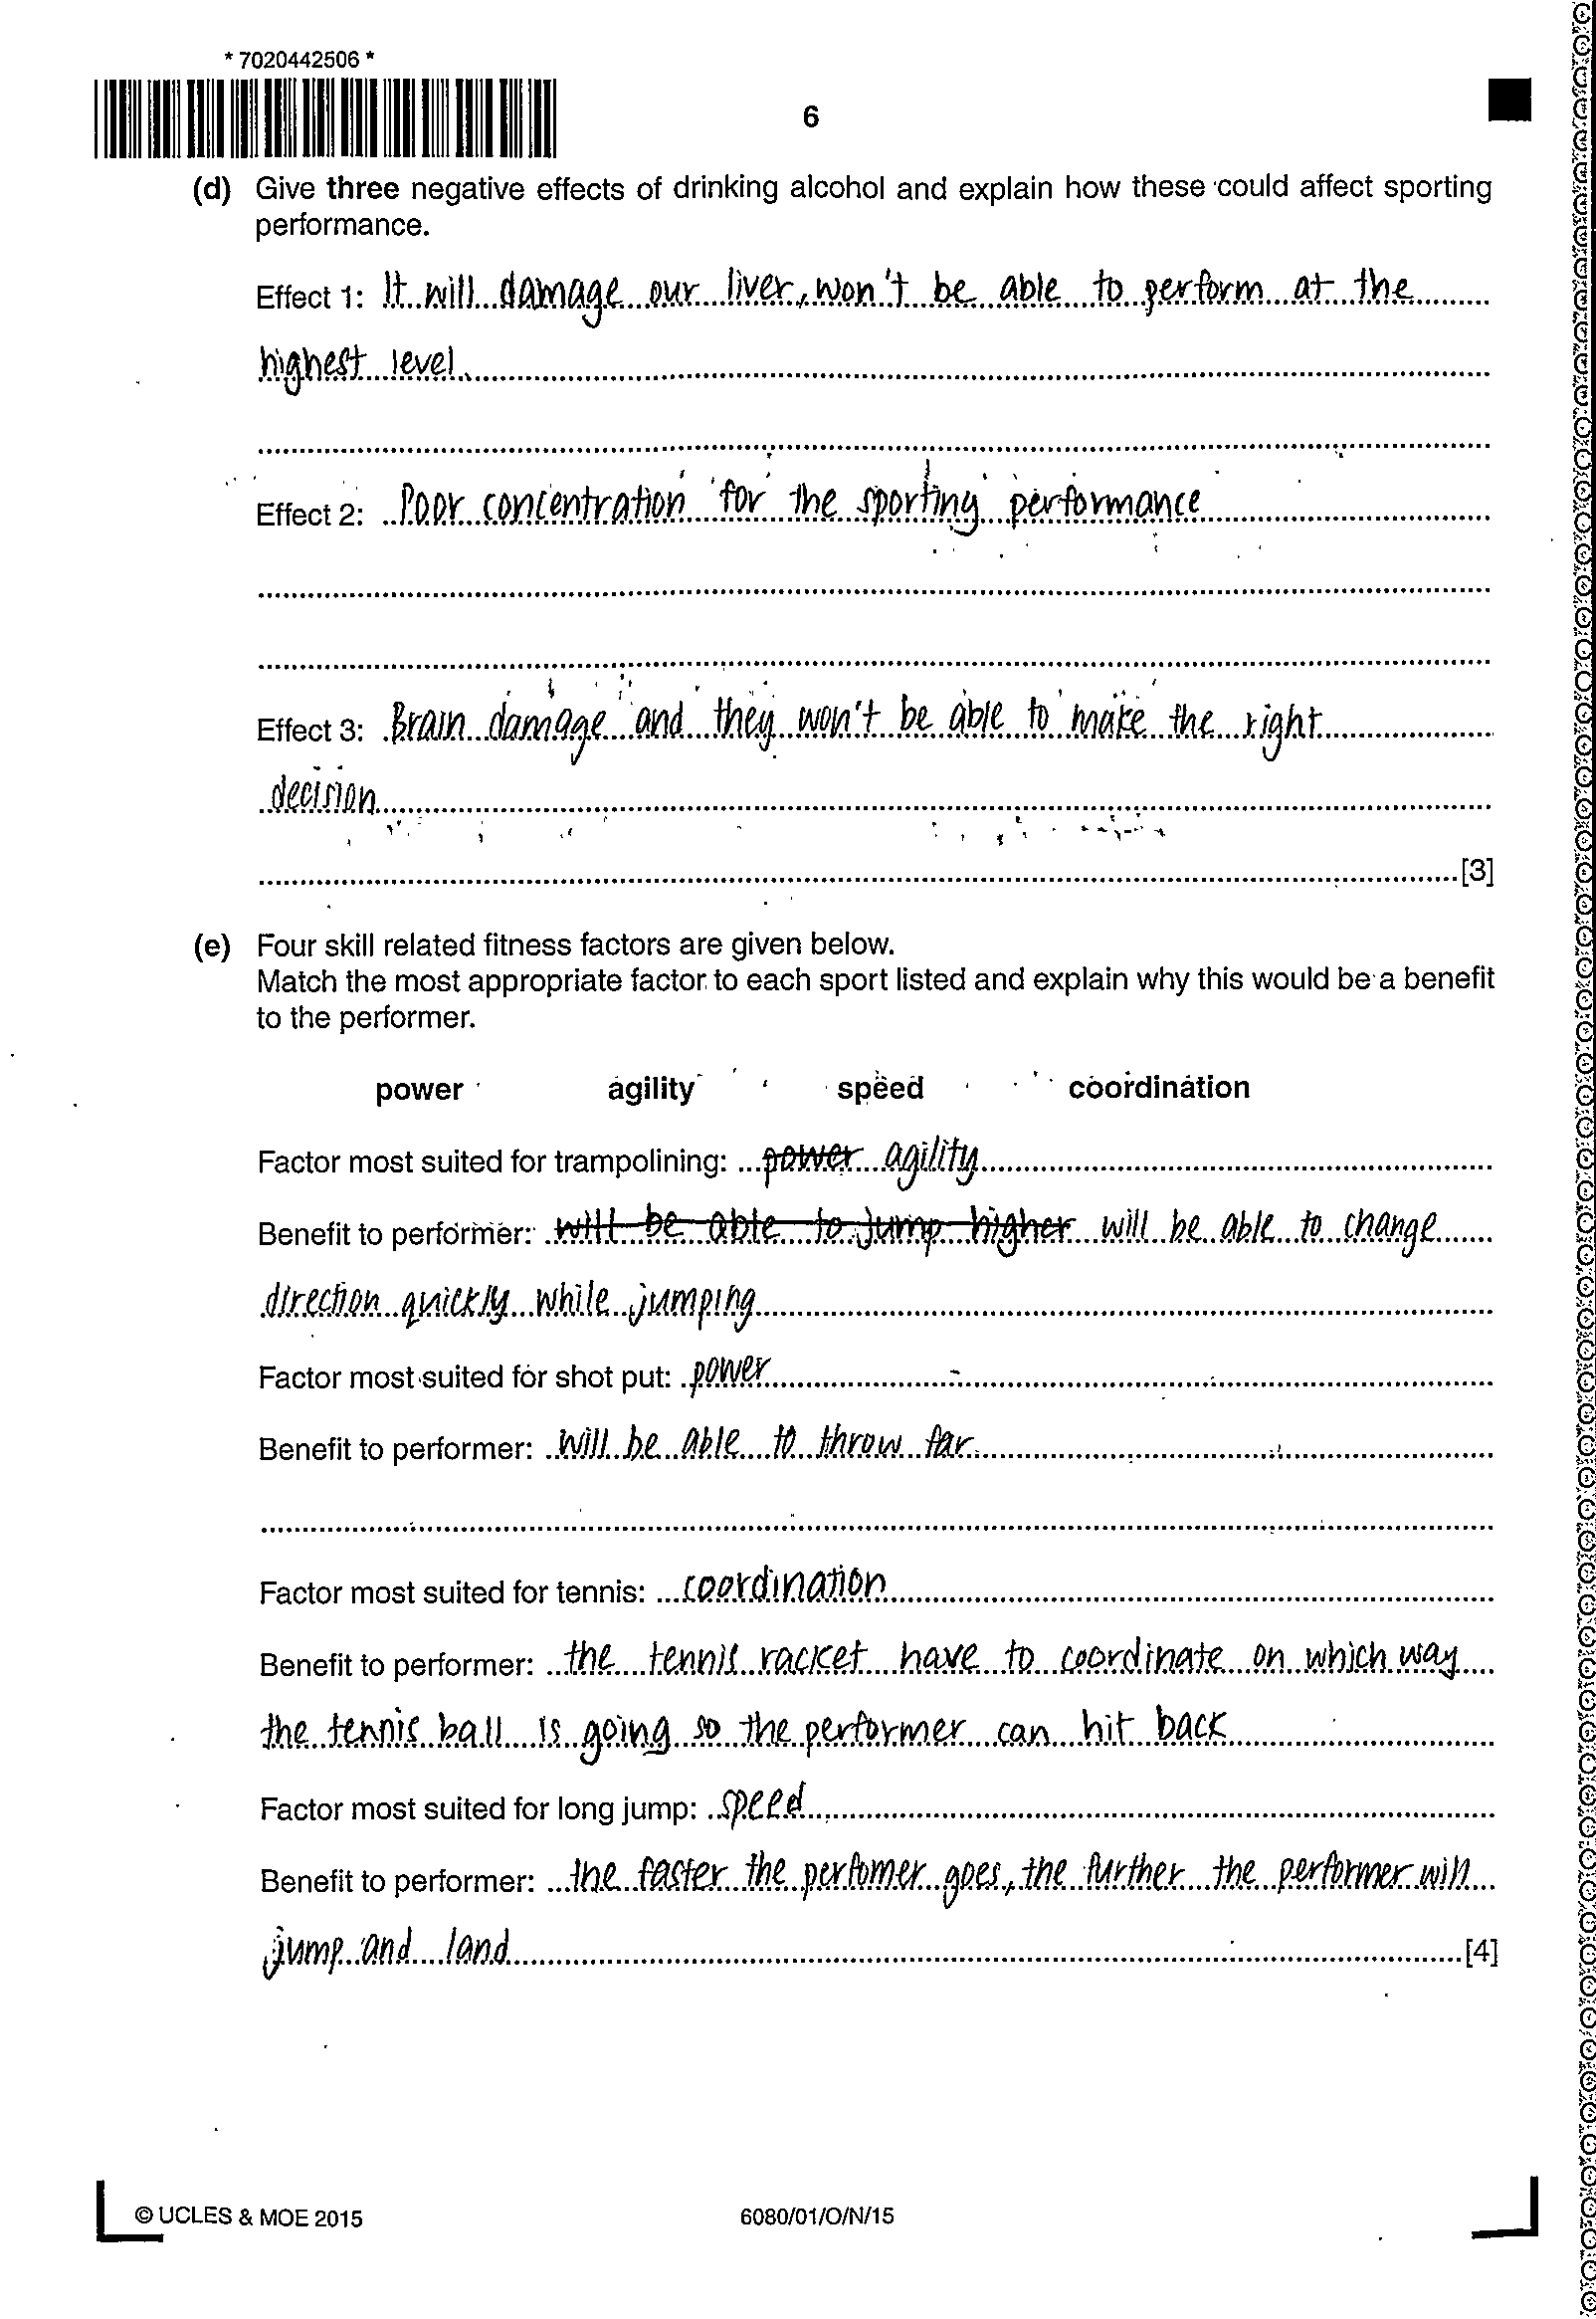 * 7020442506 *
6
(d) Give three negative effects of drinking alcohol and explain how these could affect sporting
performance.
Effect 1: It will damage our liver, won't be able to perform at the
highest level.
Effect 2: Poor concentration for the sporting performance
Effect 3: Brain damage and they won't be able to make the right
decision
[3]
(e) Four skill related fitness factors are given below.
Match the most appropriate factor to each sport listed and explain why this would be a benefit
to the performer.
power agility speed coordination
Factor most suited for trampolining: power agility
Benefit to performer: will be able to jump higher will be able to change
direction quickly while jumping
Factor most suited for shot put: power
Benefit to performer: will be able to throw far.
Factor most suited for tennis: coordination
Benefit to performer: the tennis racket have to coordinate on which way
the tennis ball is going so the performer can hit back
Factor most suited for long jump: speed
Benefit to performer: the faster the perfomer goes, the further the performer will
jump and land
[4]
© UCLES & MOE 2015
6080/01/O/N/15